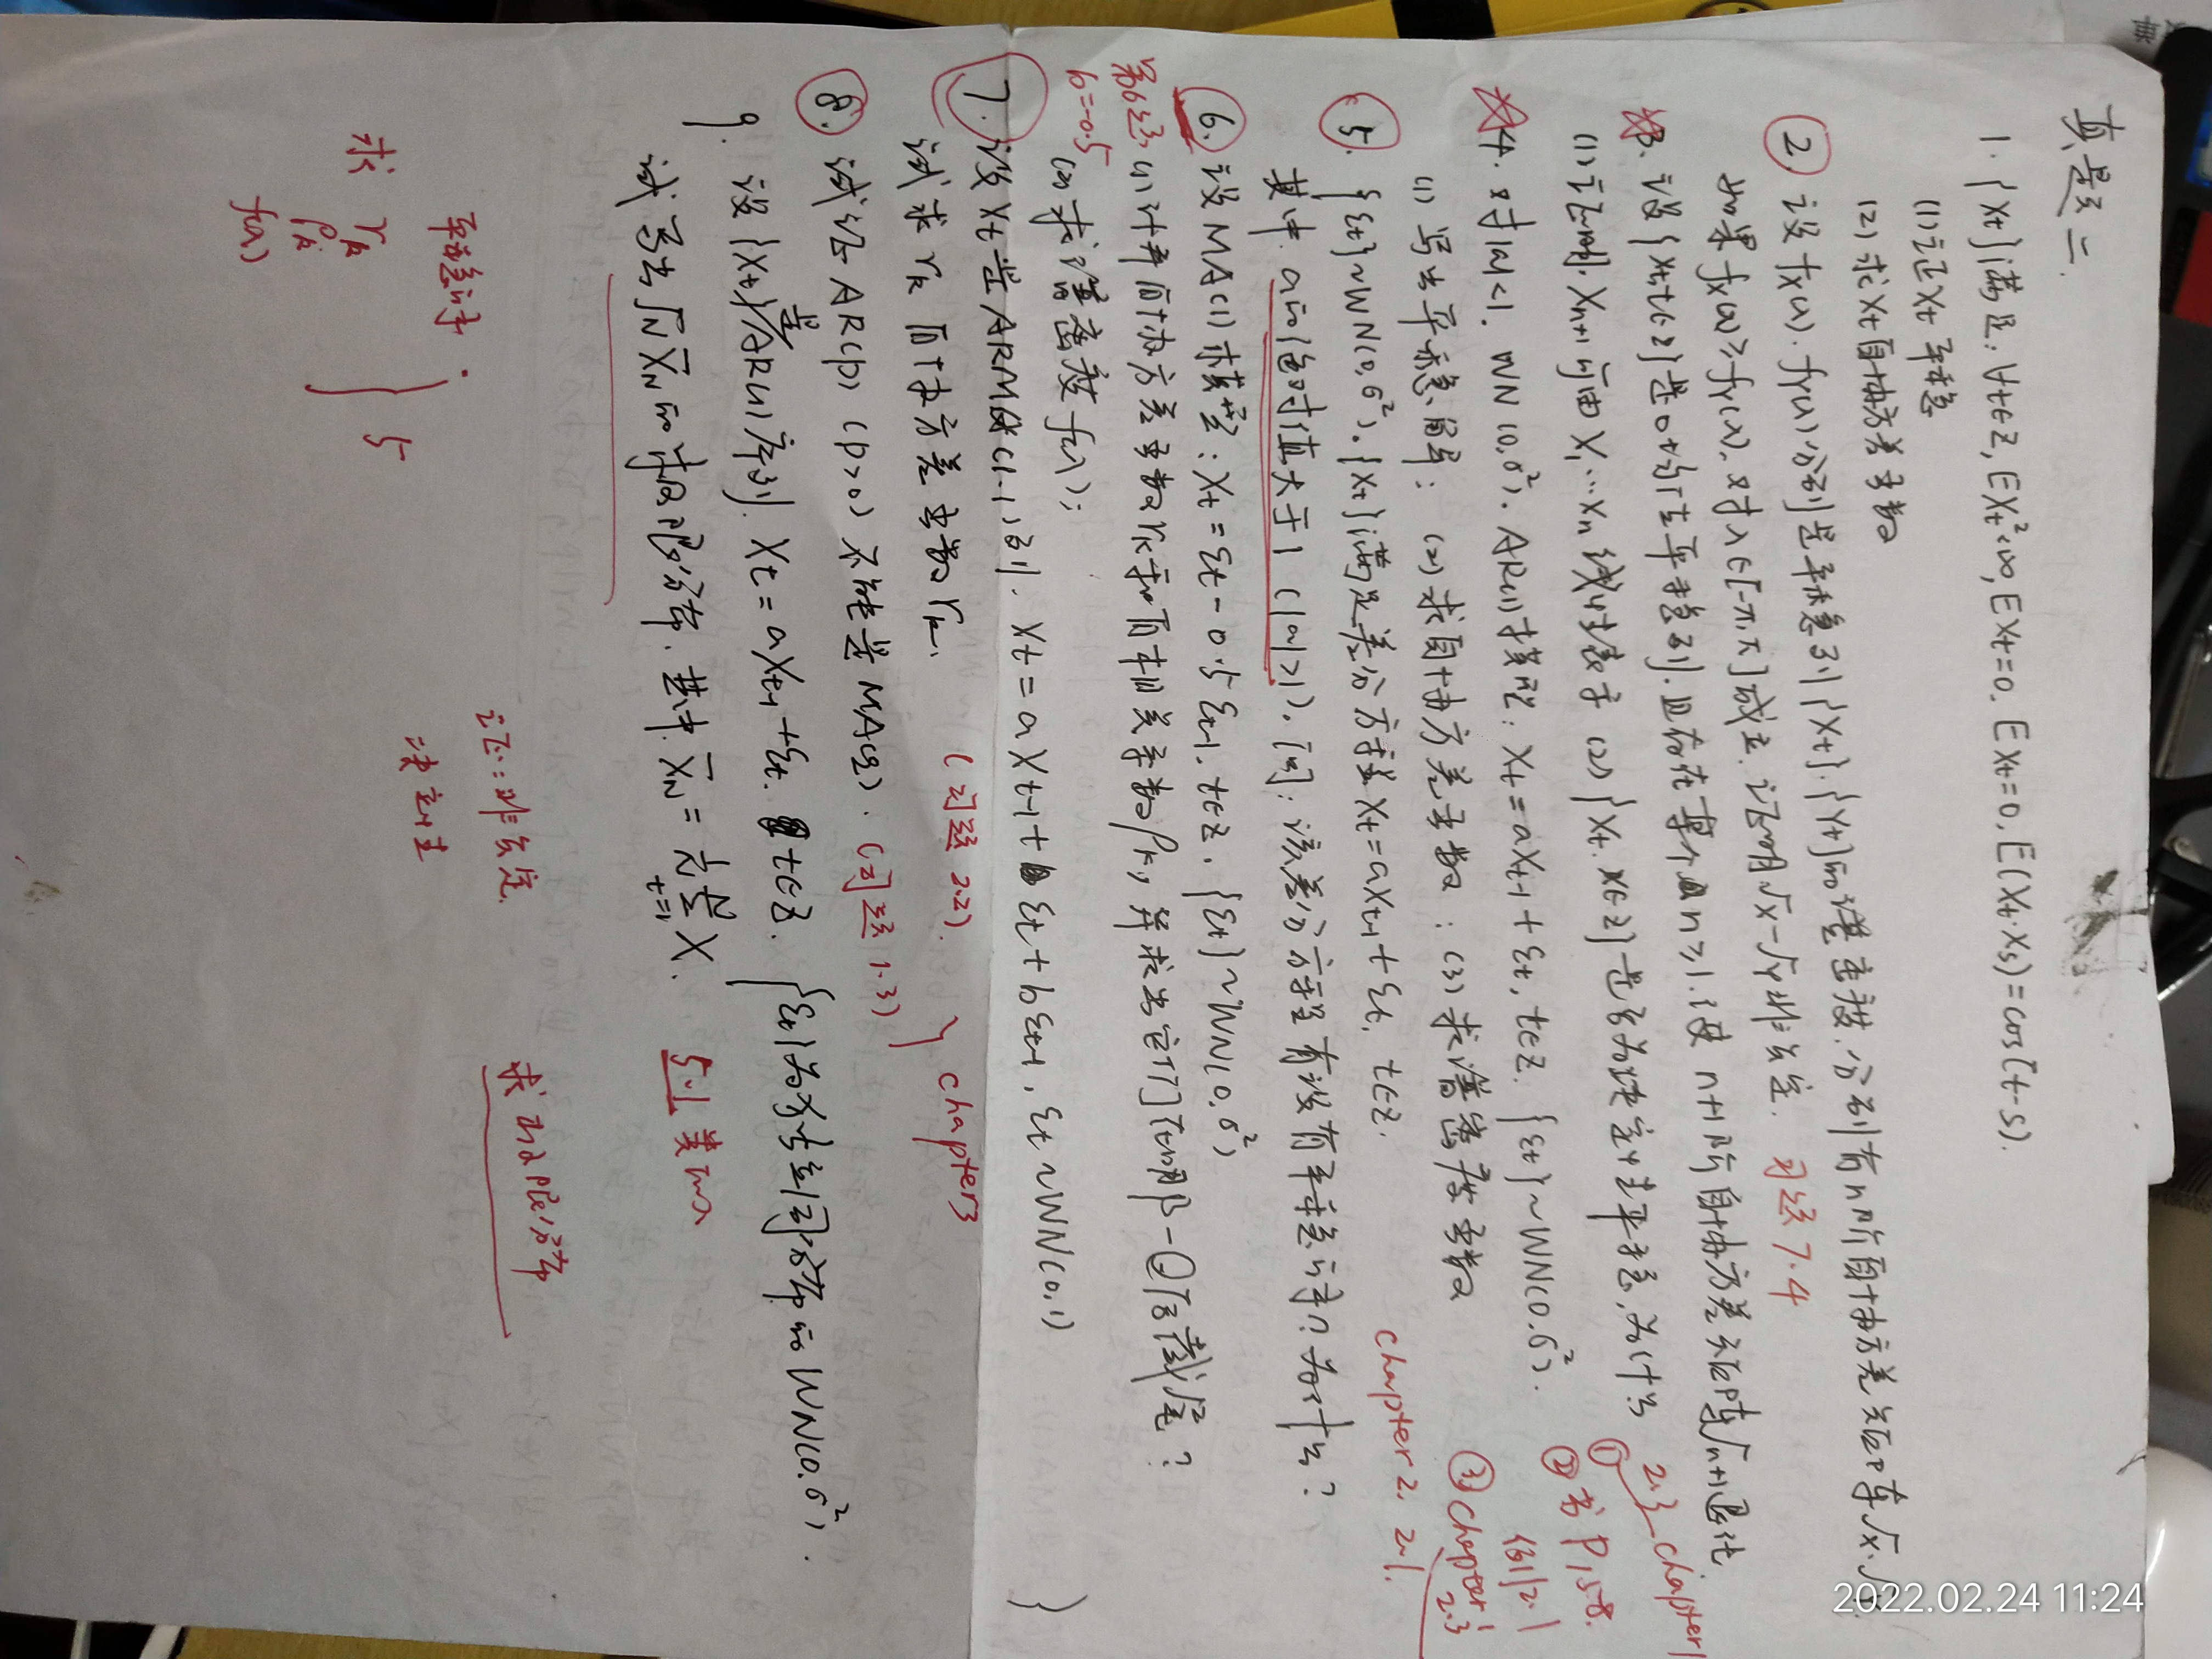 真题二.
1. {Xt}满足: ∀t∈Z, EXt²<∞, EXt=0. EXt=0, E(Xt·Xs)=cos(t-s).
(1)证Xt平稳
(2)求Xt自协方差函数
2. 设fx(λ).fY(λ)分别是平稳列{Xt}.{Yt}的谱密度.分别有n阶自协方差矩阵Γx.
如果fx(λ)≥fY(λ).对λ∈[-π,π]成立.证明Γx-ΓY非负定. 习题7.4
3. 设{Xt,t∈Z}是0均值平稳列.且存在某个n≥1.使n+1阶自协方差矩阵Γn+1退化.
(1)证明.Xn+1可由X1…Xn线性表示 (2){Xt.t∈Z}是否为决定性平稳,为什么
2.3 chapter1
①
②书P158.
例2.1
③chapter1
2.3
4. 对|a|<1. WN(0,σ²). AR(1)模型: Xt=aXt-1+εt, t∈Z. {εt}~WN(0,σ²).
(1)写出平稳解; (2)求自协方差函数; (3)求谱密度函数
chapter2. 2.1.
5. {εt}~WN(0,σ²).{Xt}满足差分方程Xt=aXt-1+εt, t∈Z.
其中.a的绝对值大于1 (|a|>1).问:该差分方程有没有平稳解?为什么?
6. 设MA(1)模型:Xt=εt-0.5εt-1, t∈Z. {εt}~WN(0,σ²)
第6题 (1)计算自协方差函数rk和自相关系数ρk,并求出它们在哪一 后截尾?
b=-0.5 (2)求谱密度f(λ);
7. 设Xt是ARMA(1.1)列. Xt=aXt-1+εt+bεt-1, εt~WN(0,1)
试求rk自协方差函数rk. (习题2.2). chapter3
8. 试证AR(p) (p>0) 不能是MA(q). (习题1.3)
9. 设{Xt}是AR(1)序列. Xt=aXt-1+εt. t∈Z. {εt}为独立同分布的WN(0,σ²).
试写出√N X̄N的极限分布.其中. X̄N=1/N Σ(t=1→N) X. 5.1 类似
证:非负定. 求极限分布
平稳解.
决定性
求 rk } 5
ρk
f(λ)
2022.02.24 11:24